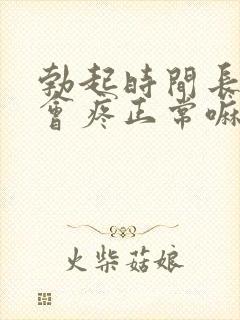 勃起時間長
會疼正常嘛
火柴菇娘